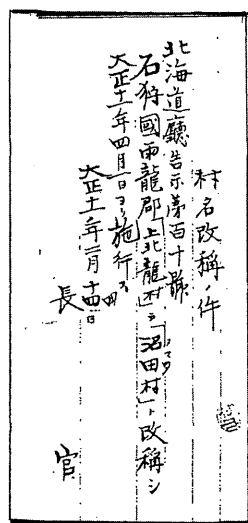 村名改稱ノ件
北海道廳告示第百十號
石狩國雨龍郡「上北龍村」ヲ「沼田村」ト改稱シ
ヌマタ
大正十一年四月一日ヨリ施行ス
大正十一年二月十四日
長官